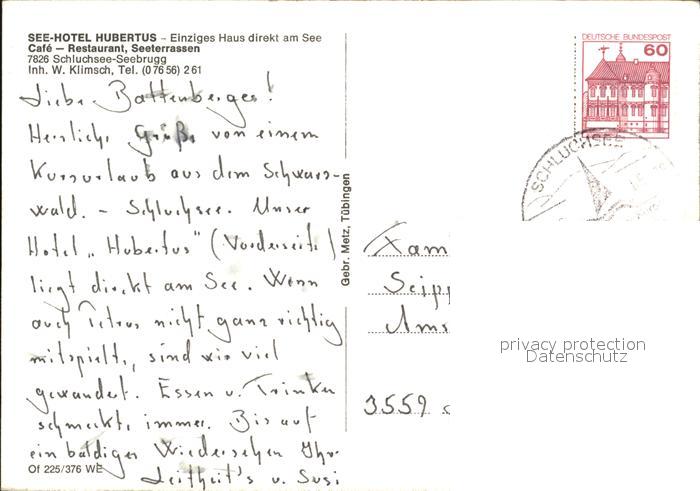 SEE-HOTEL HUBERTUS - Einziges Haus direkt am See
Café — Restaurant, Seeterrassen
7826 Schluchsee-Seebrugg
Inh. W. Klimsch, Tel. (0 76 56) 2 61
Liebe Battenberger!
Herzliche Grüße von einem
Kurzurlaub aus dem Schwarz-
wald. - Schluchsee. Unser
Hotel „Hubertus" (Vorderseite)
liegt direkt am See. Wenn
auch Petrus nicht ganz richtig
mitspielt, sind wir viel
gewandert. Essen u. Trinken
schmeckt immer. Bis auf
ein baldiges Wiedersehen Ihre
Leitheit's u. Susi
Of 225/376 WE
Gebr. Metz, Tübingen
DEUTSCHE BUNDESPOST
60
SCHLUCHSEE
Fam
Seipp
Ams
3559
privacy protection
Datenschutz